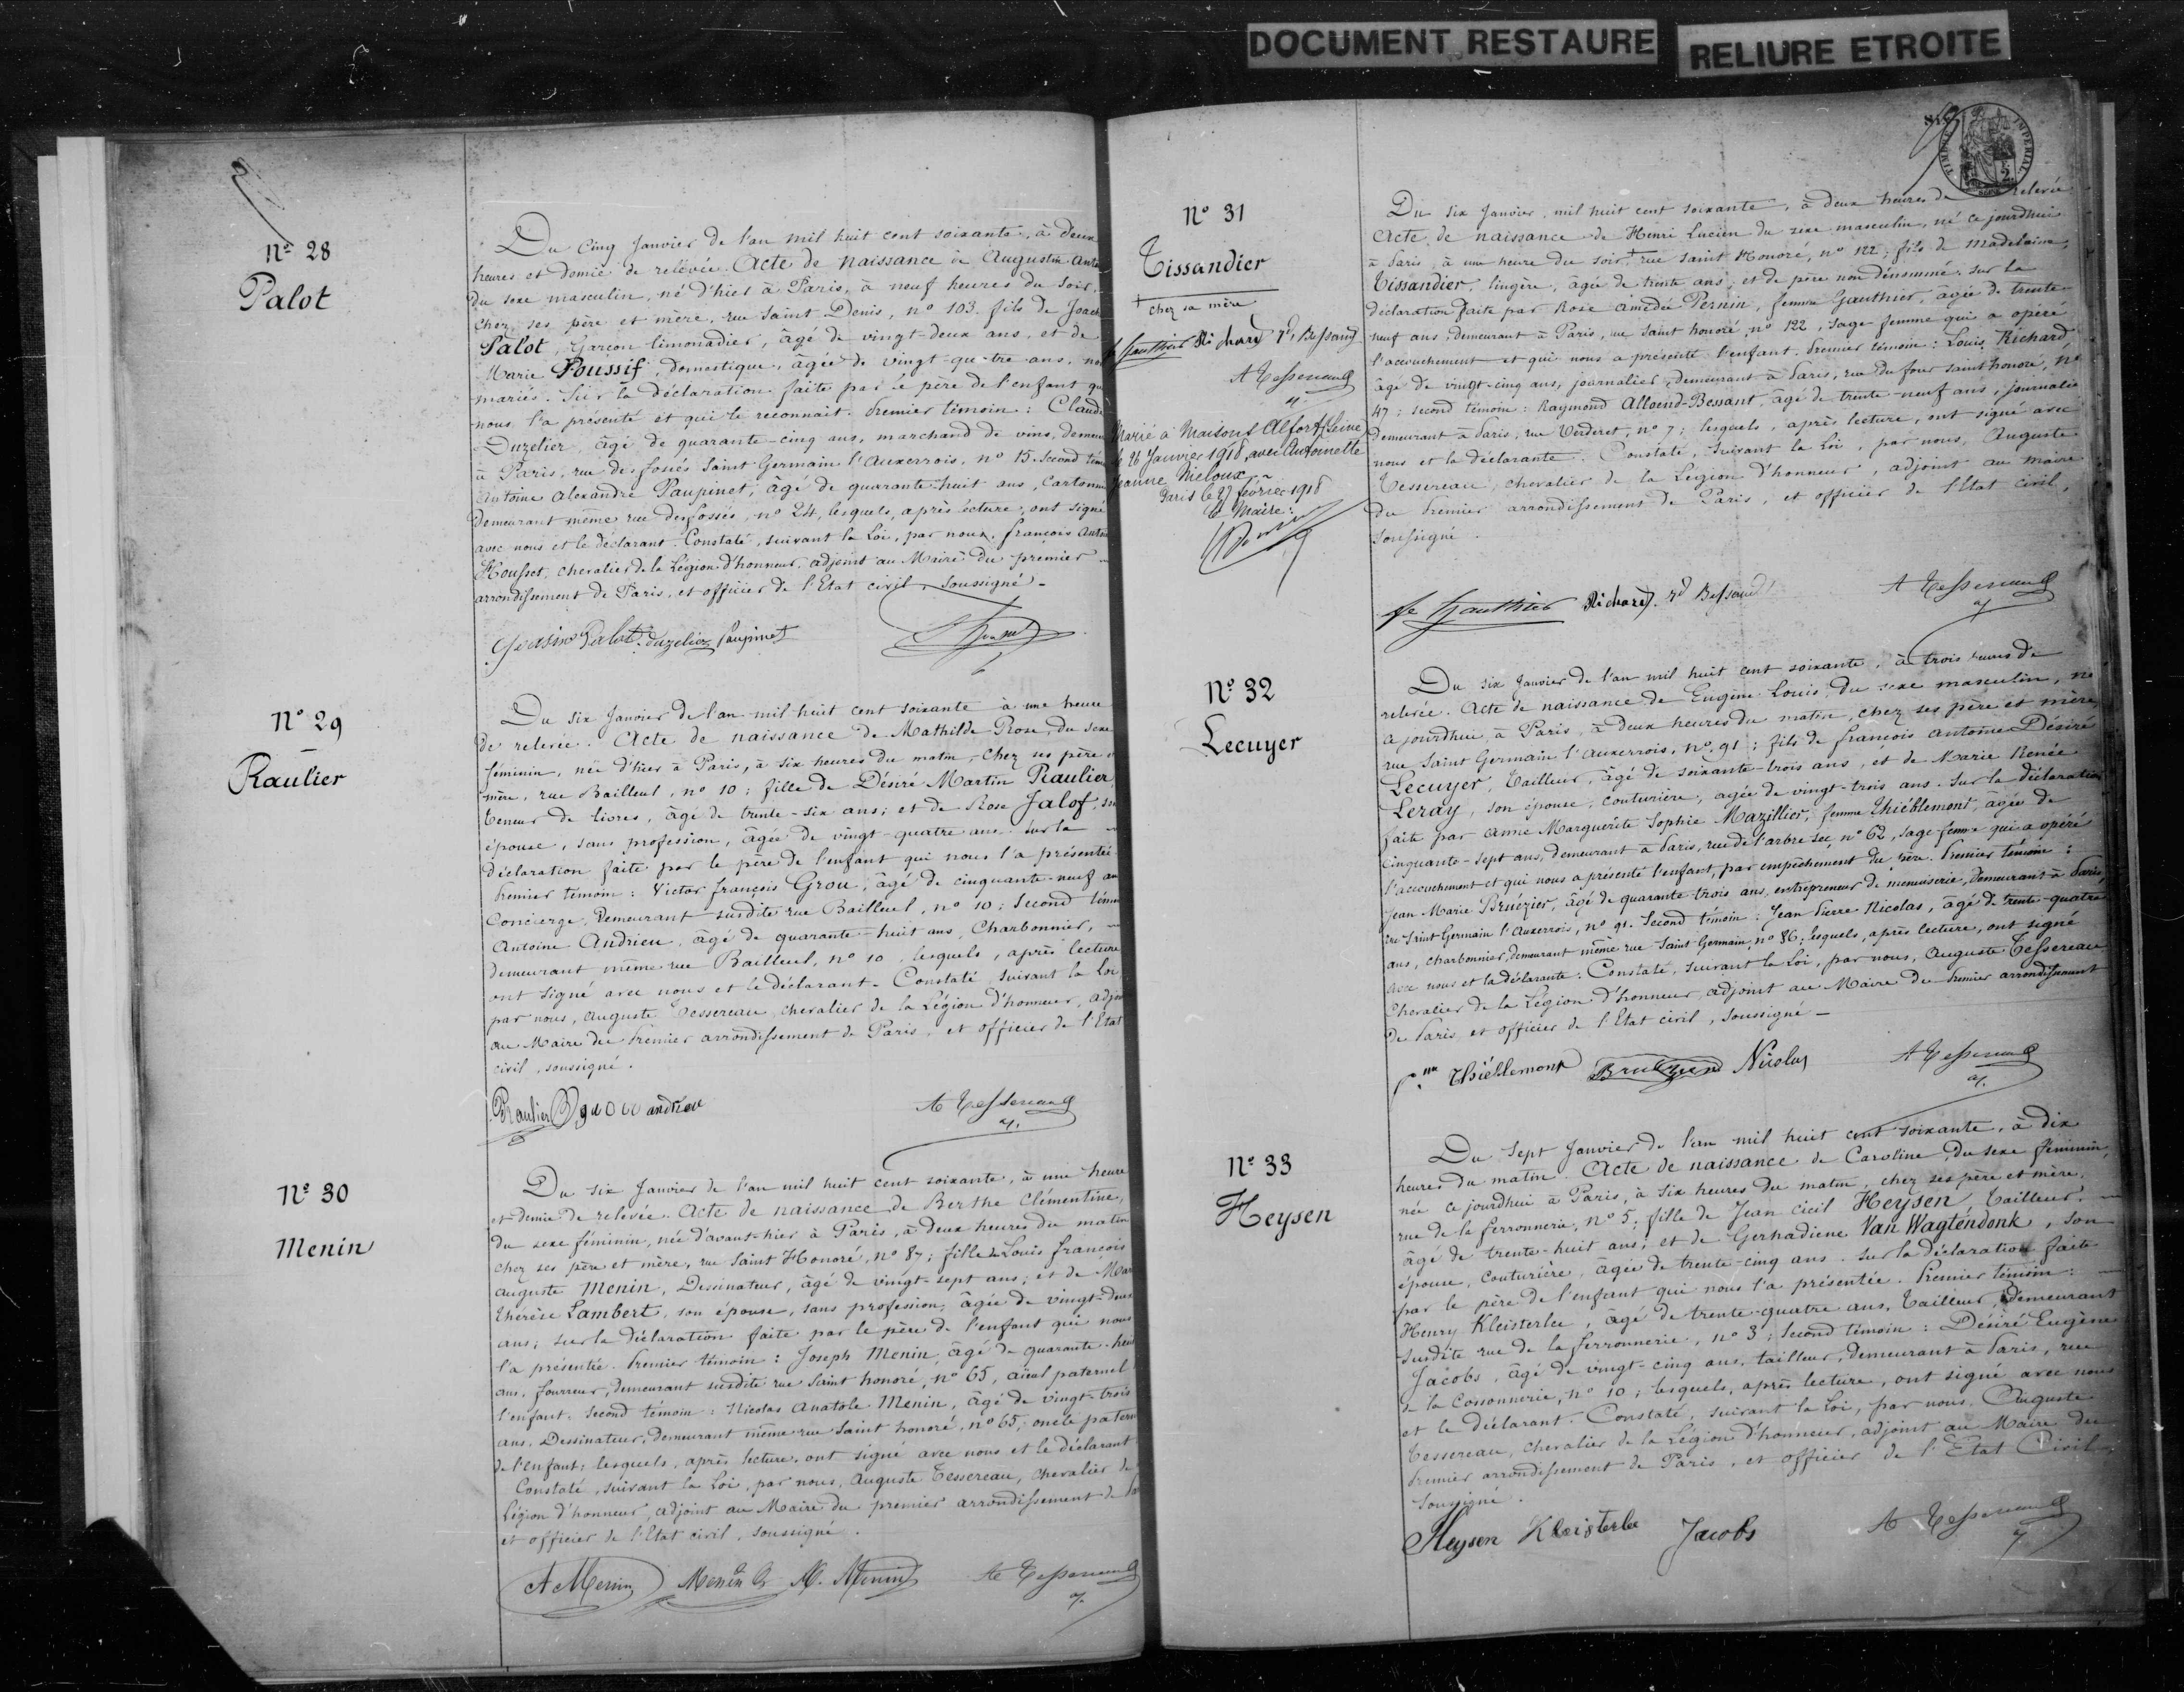 DOCUMENT RESTAURE
RELIURE ETROITE
Nº 28
Palot
Du cinq Janvier de l'an mil huit cent soixante, à deux
heures et demie de relevée. Acte de naissance de Augustin
du sexe masculin, né d'hier à Paris, à neuf heures du soir,
chez ses père et mère, rue Saint Denis, nº 103. fils de
Palot, Garçon limonadier, âgé de vingt-deux ans, et de
Marie Poussif, domestique, âgée de vingt-quatre ans, non
mariés. Sur la déclaration faite par le père de l'enfant qui
nous l'a présenté et qui le reconnait. Premier témoin : Claude
Duzelier, âgé de quarante-cinq ans, marchand de vins, demeu
à Paris, rue des fossés Saint Germain l'auxerrois, nº 15. Second tém
Antoine Alexandre Paupinet, âgé de quarante-huit ans, Cartonn
demeurant même rue des fossés, nº 24, lesquels, après lecture, ont signé
avec nous et le déclarant. Constaté, suivant la Loi, par nous, françois
Housset, chevalier de la Légion d'honneur, adjoint au Maire du premier
arrondissement de Paris, et officier de l'Etat civil, soussigné.
Palot. Duzelier Paupinet
Nº 29
Raulier
Du six Janvier de l'an mil huit cent soixante à une heure
de relevée. Acte de naissance de Mathilde Rose, du sexe
féminin, née d'hier à Paris, à six heures du matin, chez ses père
mère, rue Bailleul, nº 10; fille de Désiré Martin Raulier
teneur de livres, âgé de trente-six ans; et de Rose Jalof, sn
épouse, sans profession, âgée de vingt-quatre ans. Sur la
déclaration faite par le père de l'enfant qui nous l'a présentée.
Premier témoin : Victor françois Grou, âgé de cinquante-neuf an
Concierge, demeurant susdite rue Bailleul, nº 10; Second témoin
Antoine Andrieu, âgé de quarante-huit ans, Charbonnier,
demeurant même rue Bailleul, nº 10, lesquels, après lecture
ont signé avec nous et le déclarant. Constaté, suivant la Loi
par nous, Auguste Tessereau, chevalier de la Légion d'honneur, adjoi
au Maire du Premier arrondissement de Paris, et officier de l'Etat
civil, soussigné.
Raulier grou andrieu A Tessereau
Nº 30
Menin
Du six Janvier de l'an mil huit cent soixante, à une heure
et demie de relevée. Acte de naissance de Berthe Clémentine,
du sexe féminin, née d'avant-hier à Paris, à deux heures du matin
chez ses père et mère, rue Saint Honoré, nº 87; fille de Louis françois
Auguste Menin, Dessinateur, âgé de vingt-sept ans; et de Mar
Thérèse Lambert, son épouse, sans profession, âgée de vingt-deux
ans; sur la déclaration faite par le père de l'enfant qui nous
l'a présentée. Premier témoin : Joseph Menin, âgé de quarante-huit
ans, fourreur, demeurant susdite rue Saint honoré, nº 65, aïeul paternel
l'enfant. Second témoin : Nicolas Anatole Menin, âgé de vingt-trois
ans, Dessinateur, demeurant même rue Saint honoré, nº 65, oncle patern
de l'enfant; lesquels, après lecture, ont signé avec nous et le déclarant
Constaté, suivant la Loi, par nous, Auguste Tessereau, chevalier de
Légion d'honneur, adjoint au Maire du premier arrondissement de Pa
et officier de l'Etat civil, soussigné.
A Menin Menin N. Menin A Tessereau
TIMBRE IMPERIAL
Nº 31
Tissandier
+ chez sa mère
fe Gauthier Richard Rd Bessand
A Tessereau
Marié à Maisons Alfort (Seine)
le 26 Janvier 1918, avec Antoinette
Jeanne Meloux
Paris le 27 février 1918
Le Maire :
Du six Janvier, mil huit cent soixante, à deux heures de relevée
Acte de naissance de Henri Lucien du sexe masculin, né ce jourdhui
à Paris, à une heure du soir, + rue Saint Honoré, nº 122; fils de Madelaine
Tissandier, lingère, âgée de trente ans; et de père non dénommé. sur la
déclaration faite par Rose Amédée Pernin, femme Gauthier, âgée de trente-
neuf ans, demeurant à Paris, rue Saint honoré, nº 122, sage femme qui a opéré
l'accouchement et qui nous a présenté l'enfant. Premier témoin : Louis Richard,
âgé de vingt-cinq ans, journalier, demeurant à Paris, rue du four saint honoré, nº
47; second témoin : Raymond Alloend-Bessant, âgé de trente-neuf ans, journalie
demeurant à Paris, rue Verderet, nº 7; lesquels, après lecture, ont signé avec
nous et la déclarante. Constaté, suivant la Loi, par nous, Auguste
Tessereau, chevalier de la Légion d'honneur, adjoint au maire
du Premier arrondissement de Paris, et officier de l'Etat civil,
soussigné.
fe Gauthier Richard. Rd Bessand A Tessereau
Nº 32
Lecuyer
Du six Janvier de l'an mil huit cent soixante, à trois heures de
relevée. Acte de naissance de Eugène Louis, du sexe masculin, né
ajourdhui, à Paris, à deux heures du matin, chez ses père et mère,
rue Saint Germain l'auxerrois, nº 91; fils de françois Antoine Désiré
Lecuyer, Tailleur, âgé de soixante-trois ans, et de Marie Renée
Leray, son épouse, couturière, agée de vingt-trois ans. Sur la déclaration
faite par Anne Marguerite Sophie Mazillier, femme Thiéblemont, âgée de
cinquante-sept ans, demeurant à Paris, rue de l'arbre sec, nº 62, sage-femme qui a opéré
l'accouchement et qui nous a présenté l'enfant, par empêchement du père. Premier témoin :
Jean Marie Bruézier, âgé de quarante-trois ans, entrepreneur de menuiserie, demeurant à Paris,
rue Saint Germain l'Auxerrois, nº 91. Second témoin : Jean Pierre Nicolas, âgé de trente-quatre
ans, charbonnier, demeurant même rue Saint Germain, nº 86; lesquels, après lecture, ont signé
avec nous et la déclarante : Constaté, suivant la Loi, par nous, Auguste Tessereau
Chevalier de la Légion d'honneur, adjoint au Maire du Premier arrondissement
de Paris, et officier de l'Etat civil, soussigné
Thiéblemont Nicolas A Tessereau
Nº 33
Heysen
Du Sept Janvier de l'an mil huit cent soixante, à dix
heures du matin. Acte de naissance de Caroline, du sexe féminin,
née ce jourdhui à Paris, à six heures du matin, chez ses père et mère,
rue de la ferronnerie, nº 5; fille de Jean Cicil Heysen, tailleur,
âgé de trente-huit ans; et de Gerhadiene Van Wagtendonk, son
épouse, couturière, agée de trente-cinq ans. Sur la déclaration faite
par le père de l'enfant qui nous l'a présentée. Premier témoin :
Henry Kleisterlee, âgé de trente-quatre ans, tailleur, demeurant
susdite rue de la ferronnerie, nº 3; Second témoin : Désiré Eugène
Jacobs, âgé de vingt-cinq ans, tailleur, demeurant à Paris, rue
de la Cossonnerie, nº 10; lesquels, après lecture, ont signé avec nous
et le déclarant. Constaté, suivant la Loi, par nous, Auguste
Tessereau, chevalier de la Légion d'honneur, adjoint au Maire du
Premier arrondissement de Paris, et officier de l'Etat Civil
soussigné.
Heysen Kleisterlee Jacobs A Tessereau